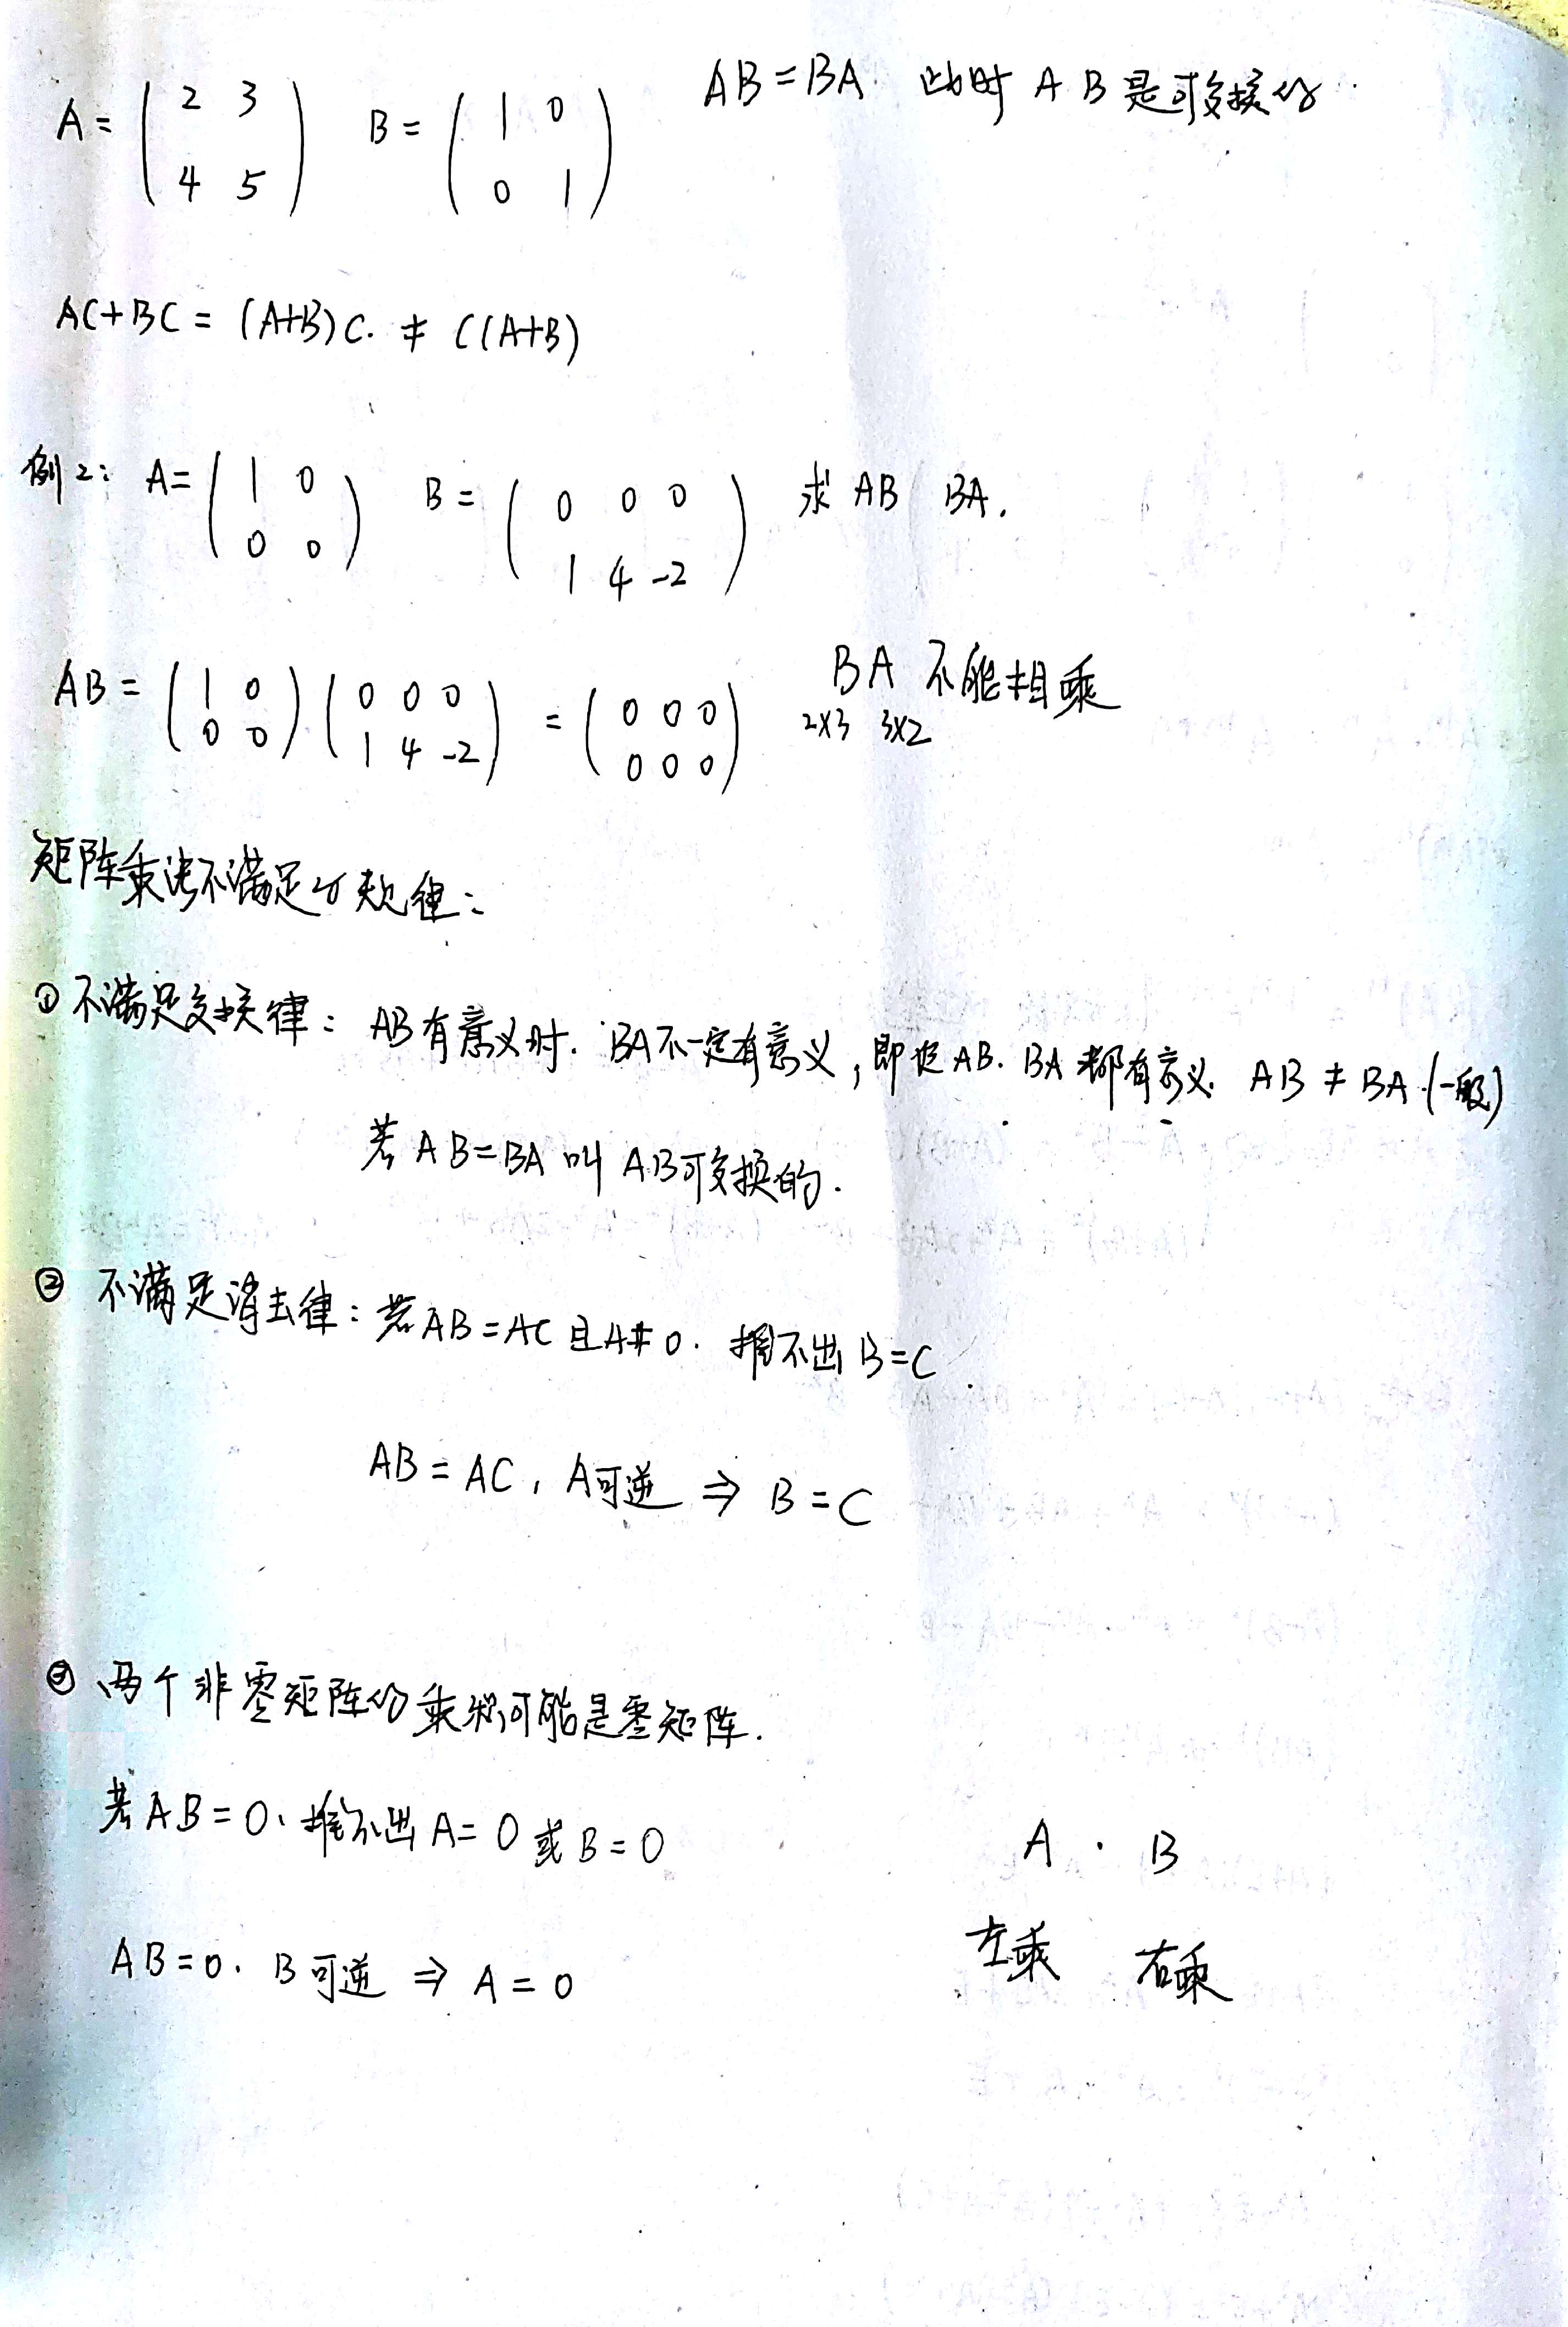 A = ( 2 3 ; 4 5 ) B = ( 1 0 ; 0 1 ) AB = BA. 此时 A B 是可交换的
AC+BC = (A+B)C. ≠ C(A+B)
例2: A = ( 1 0 ; 0 0 ) B = ( 0 0 0 ; 1 4 -2 ) 求 AB BA.
AB = ( 1 0 ; 0 0 ) ( 0 0 0 ; 1 4 -2 ) = ( 0 0 0 ; 0 0 0 ) BA 不能相乘
2×3 3×2
矩阵乘法不满足的规律:
① 不满足交换律: AB有意义时. BA不一定有意义, 即使AB. BA都有意义. AB ≠ BA.(一般)
若 AB=BA 叫 AB可交换的.
② 不满足消去律: 若AB=AC 且A≠0. 推不出 B=C.
AB = AC, A可逆 ⇒ B = C
③ 两个非零矩阵的乘积可能是零矩阵.
若 AB=0. 推不出 A=0 或 B=0
A · B
左乘 右乘
AB=0. B可逆 ⇒ A=0